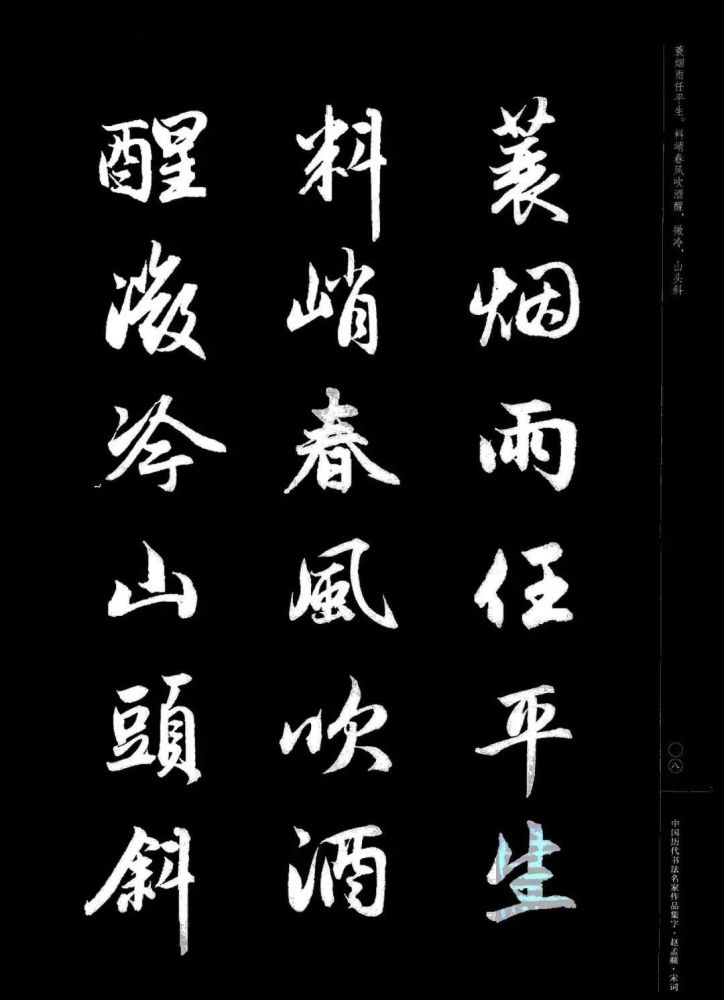 蓑烟雨任平生
料峭春風吹酒
醒微冷山頭斜
蓑烟雨任平生。料峭春风吹酒醒，微冷，山头斜
〇八
中国历代书法名家作品集字·赵孟頫·宋词